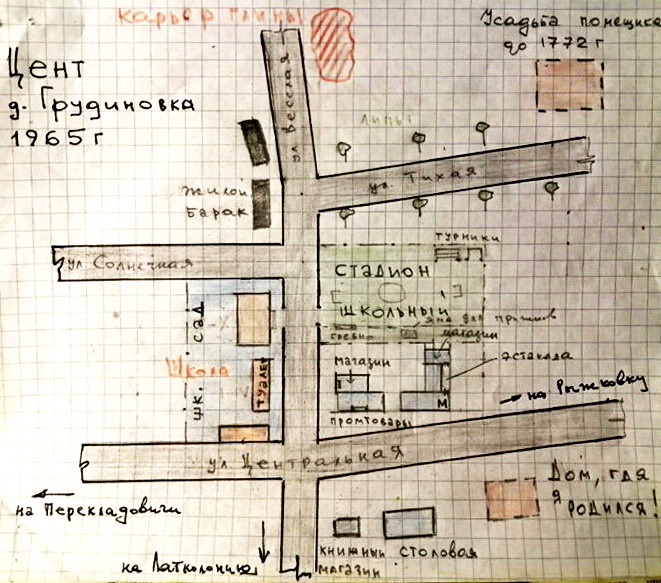 карьер глины
Усадьба помещика
до 1772 г
Цент
д. Грудиновка
1965 г
ул Веселая
Липы
ул. Тихая
жилой
барак
турники
ул Солнечная
стадион
школьный
яма для прыжков
бревно
магазин
шк. сад
Школа
туалет
магазин
эстакада
М
на Рыжковку
промтовары
ул Центральная
Дом, где
я
родился!
на Перекладовичи
на Латколонию
книжный столовая
магазин